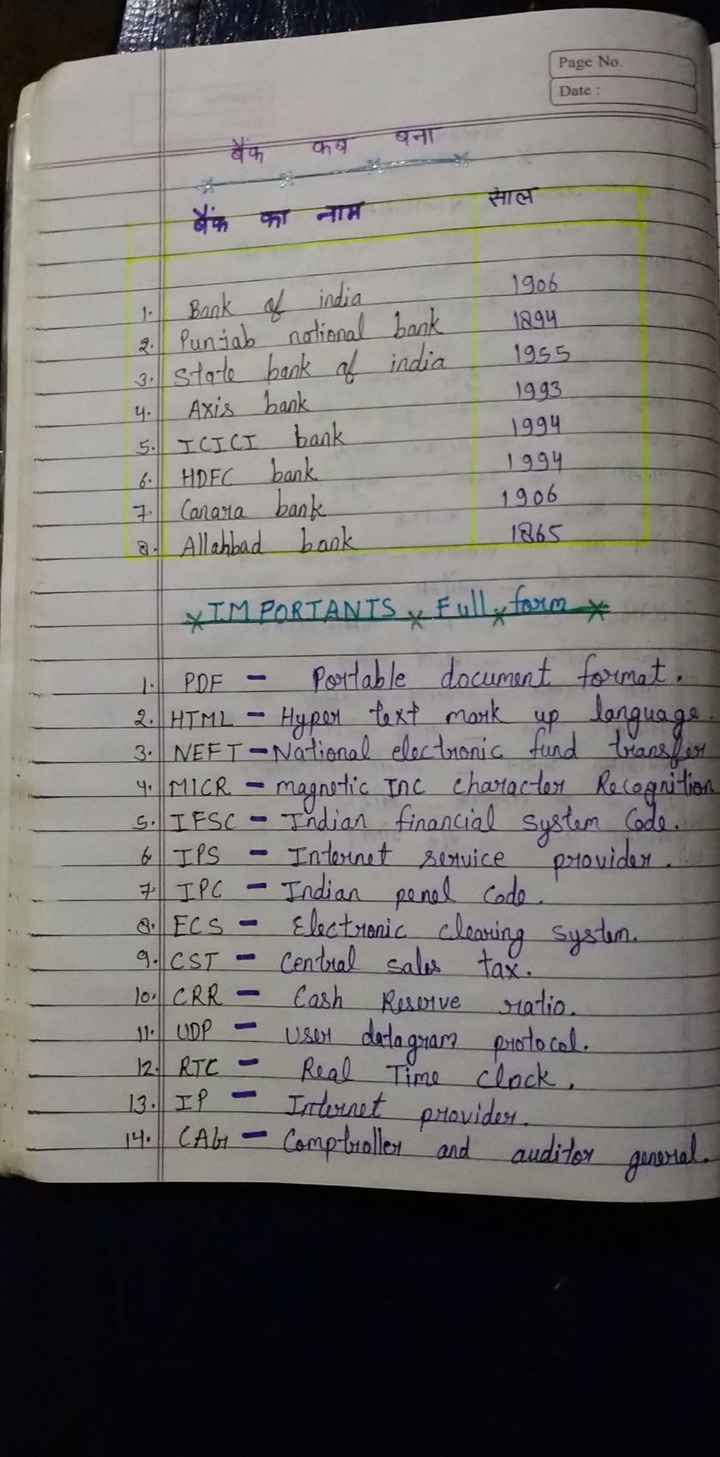 Page No.
Date :
बैंक कब बना
बैंक का नाम साल
1. Bank of india 1906
2. Punjab national bank 1894
3. State bank of india 1955
4. Axis bank 1993
5. ICICI bank 1994
6. HDFC bank 1994
7. Canara bank 1906
8. Allahbad bank 1865
IMPORTANTS Full form
1. PDF - Portable document format.
2. HTML - Hyper text mark up language.
3. NEFT - National electronic fund transfer
4. MICR - magnetic Inc character Recognition
5. IFSC - Indian financial system Code.
6 IPS - Internet service provider.
7 IPC - Indian penel code.
8. ECS - Electronic clearing system.
9. CST - Central sales tax.
10. CRR - Cash Reserve ratio.
11. UDP - User datagram protocol.
12. RTC - Real Time clock.
13. IP - Internet provider.
14. CAG - Comptroller and auditor general.